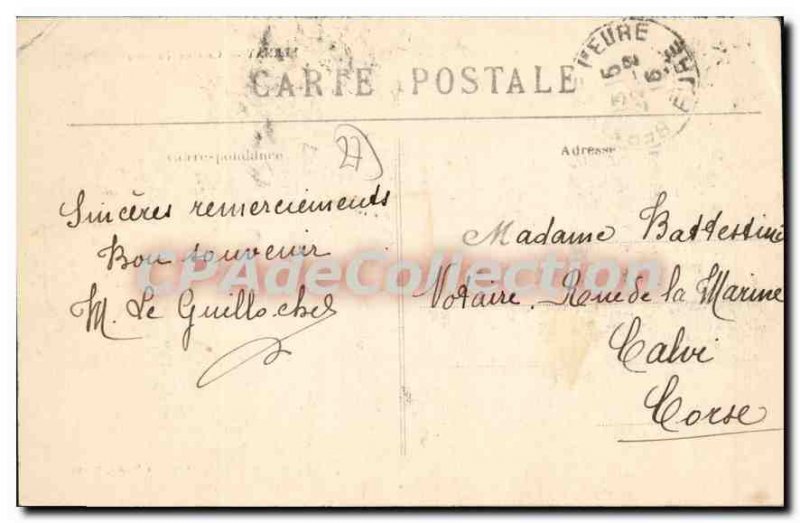 CARTE POSTALE
Correspondance
Adresse
27
Sincères remerciements
Bon souvenir
M. Le Guillochet
Madame Battestini
Notaire. Rue de la Marine
Calvi
Corse
CPAdeCollection
EURE